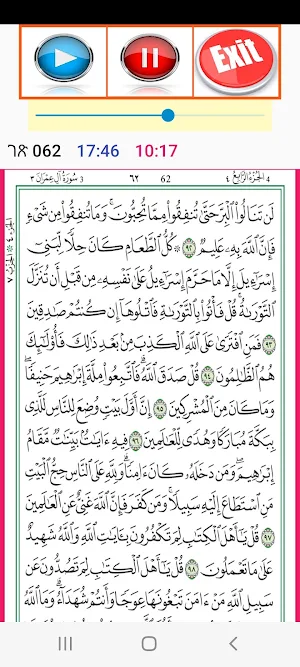 Exit
ገጽ 062 17:46 10:17
3 سُورَةُ آلِ عِمْرَان ٣ ٦٢ 62 4 الجُزْءُ الرَّابِعُ ٤
لَن تَنَالُوا۟ ٱلْبِرَّ حَتَّىٰ تُنفِقُوا۟ مِمَّا تُحِبُّونَ ۚ وَمَا تُنفِقُوا۟ مِن شَىْءٍ
فَإِنَّ ٱللَّهَ بِهِۦ عَلِيمٌ ٩٢ ۞ كُلُّ ٱلطَّعَامِ كَانَ حِلًّا لِّبَنِىٓ
إِسْرَٰٓءِيلَ إِلَّا مَا حَرَّمَ إِسْرَٰٓءِيلُ عَلَىٰ نَفْسِهِۦ مِن قَبْلِ أَن تُنَزَّلَ
ٱلتَّوْرَىٰةُ ۗ قُلْ فَأْتُوا۟ بِٱلتَّوْرَىٰةِ فَٱتْلُوهَآ إِن كُنتُمْ صَٰدِقِينَ
٩٣ فَمَنِ ٱفْتَرَىٰ عَلَى ٱللَّهِ ٱلْكَذِبَ مِنۢ بَعْدِ ذَٰلِكَ فَأُو۟لَٰٓئِكَ
هُمُ ٱلظَّٰلِمُونَ ٩٤ قُلْ صَدَقَ ٱللَّهُ ۗ فَٱتَّبِعُوا۟ مِلَّةَ إِبْرَٰهِيمَ حَنِيفًا
وَمَا كَانَ مِنَ ٱلْمُشْرِكِينَ ٩٥ إِنَّ أَوَّلَ بَيْتٍ وُضِعَ لِلنَّاسِ لَلَّذِى
بِبَكَّةَ مُبَارَكًا وَهُدًى لِّلْعَٰلَمِينَ ٩٦ فِيهِ ءَايَٰتٌۢ بَيِّنَٰتٌ مَّقَامُ
إِبْرَٰهِيمَ ۖ وَمَن دَخَلَهُۥ كَانَ ءَامِنًا ۗ وَلِلَّهِ عَلَى ٱلنَّاسِ حِجُّ ٱلْبَيْتِ
مَنِ ٱسْتَطَاعَ إِلَيْهِ سَبِيلًا ۚ وَمَن كَفَرَ فَإِنَّ ٱللَّهَ غَنِىٌّ عَنِ ٱلْعَٰلَمِينَ
٩٧ قُلْ يَٰٓأَهْلَ ٱلْكِتَٰبِ لِمَ تَكْفُرُونَ بِـَٔايَٰتِ ٱللَّهِ وَٱللَّهُ شَهِيدٌ
عَلَىٰ مَا تَعْمَلُونَ ٩٨ قُلْ يَٰٓأَهْلَ ٱلْكِتَٰبِ لِمَ تَصُدُّونَ عَن
سَبِيلِ ٱللَّهِ مَنْ ءَامَنَ تَبْغُونَهَا عِوَجًا وَأَنتُمْ شُهَدَآءُ ۗ وَمَا ٱللَّهُ
الجزء ٤ ۞ الحزب ٧